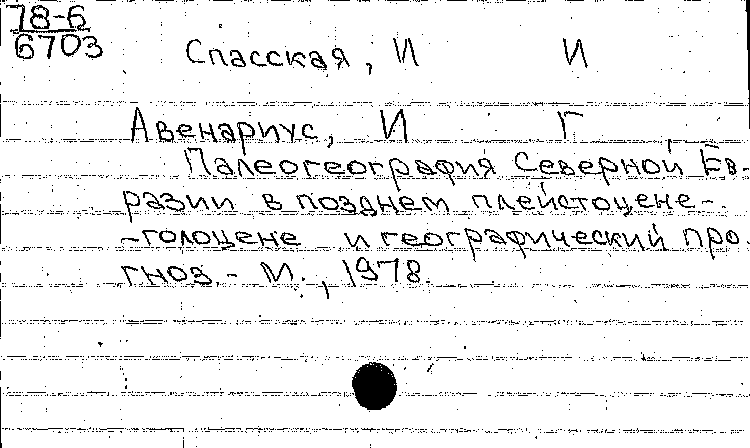 78-6
6703
Спасская, И И
Авенариус, И Г
Палеогеография Северной Ев-
разии в позднем плейстоцене-
-голоцене и географический про-
гноз - М., 1978.